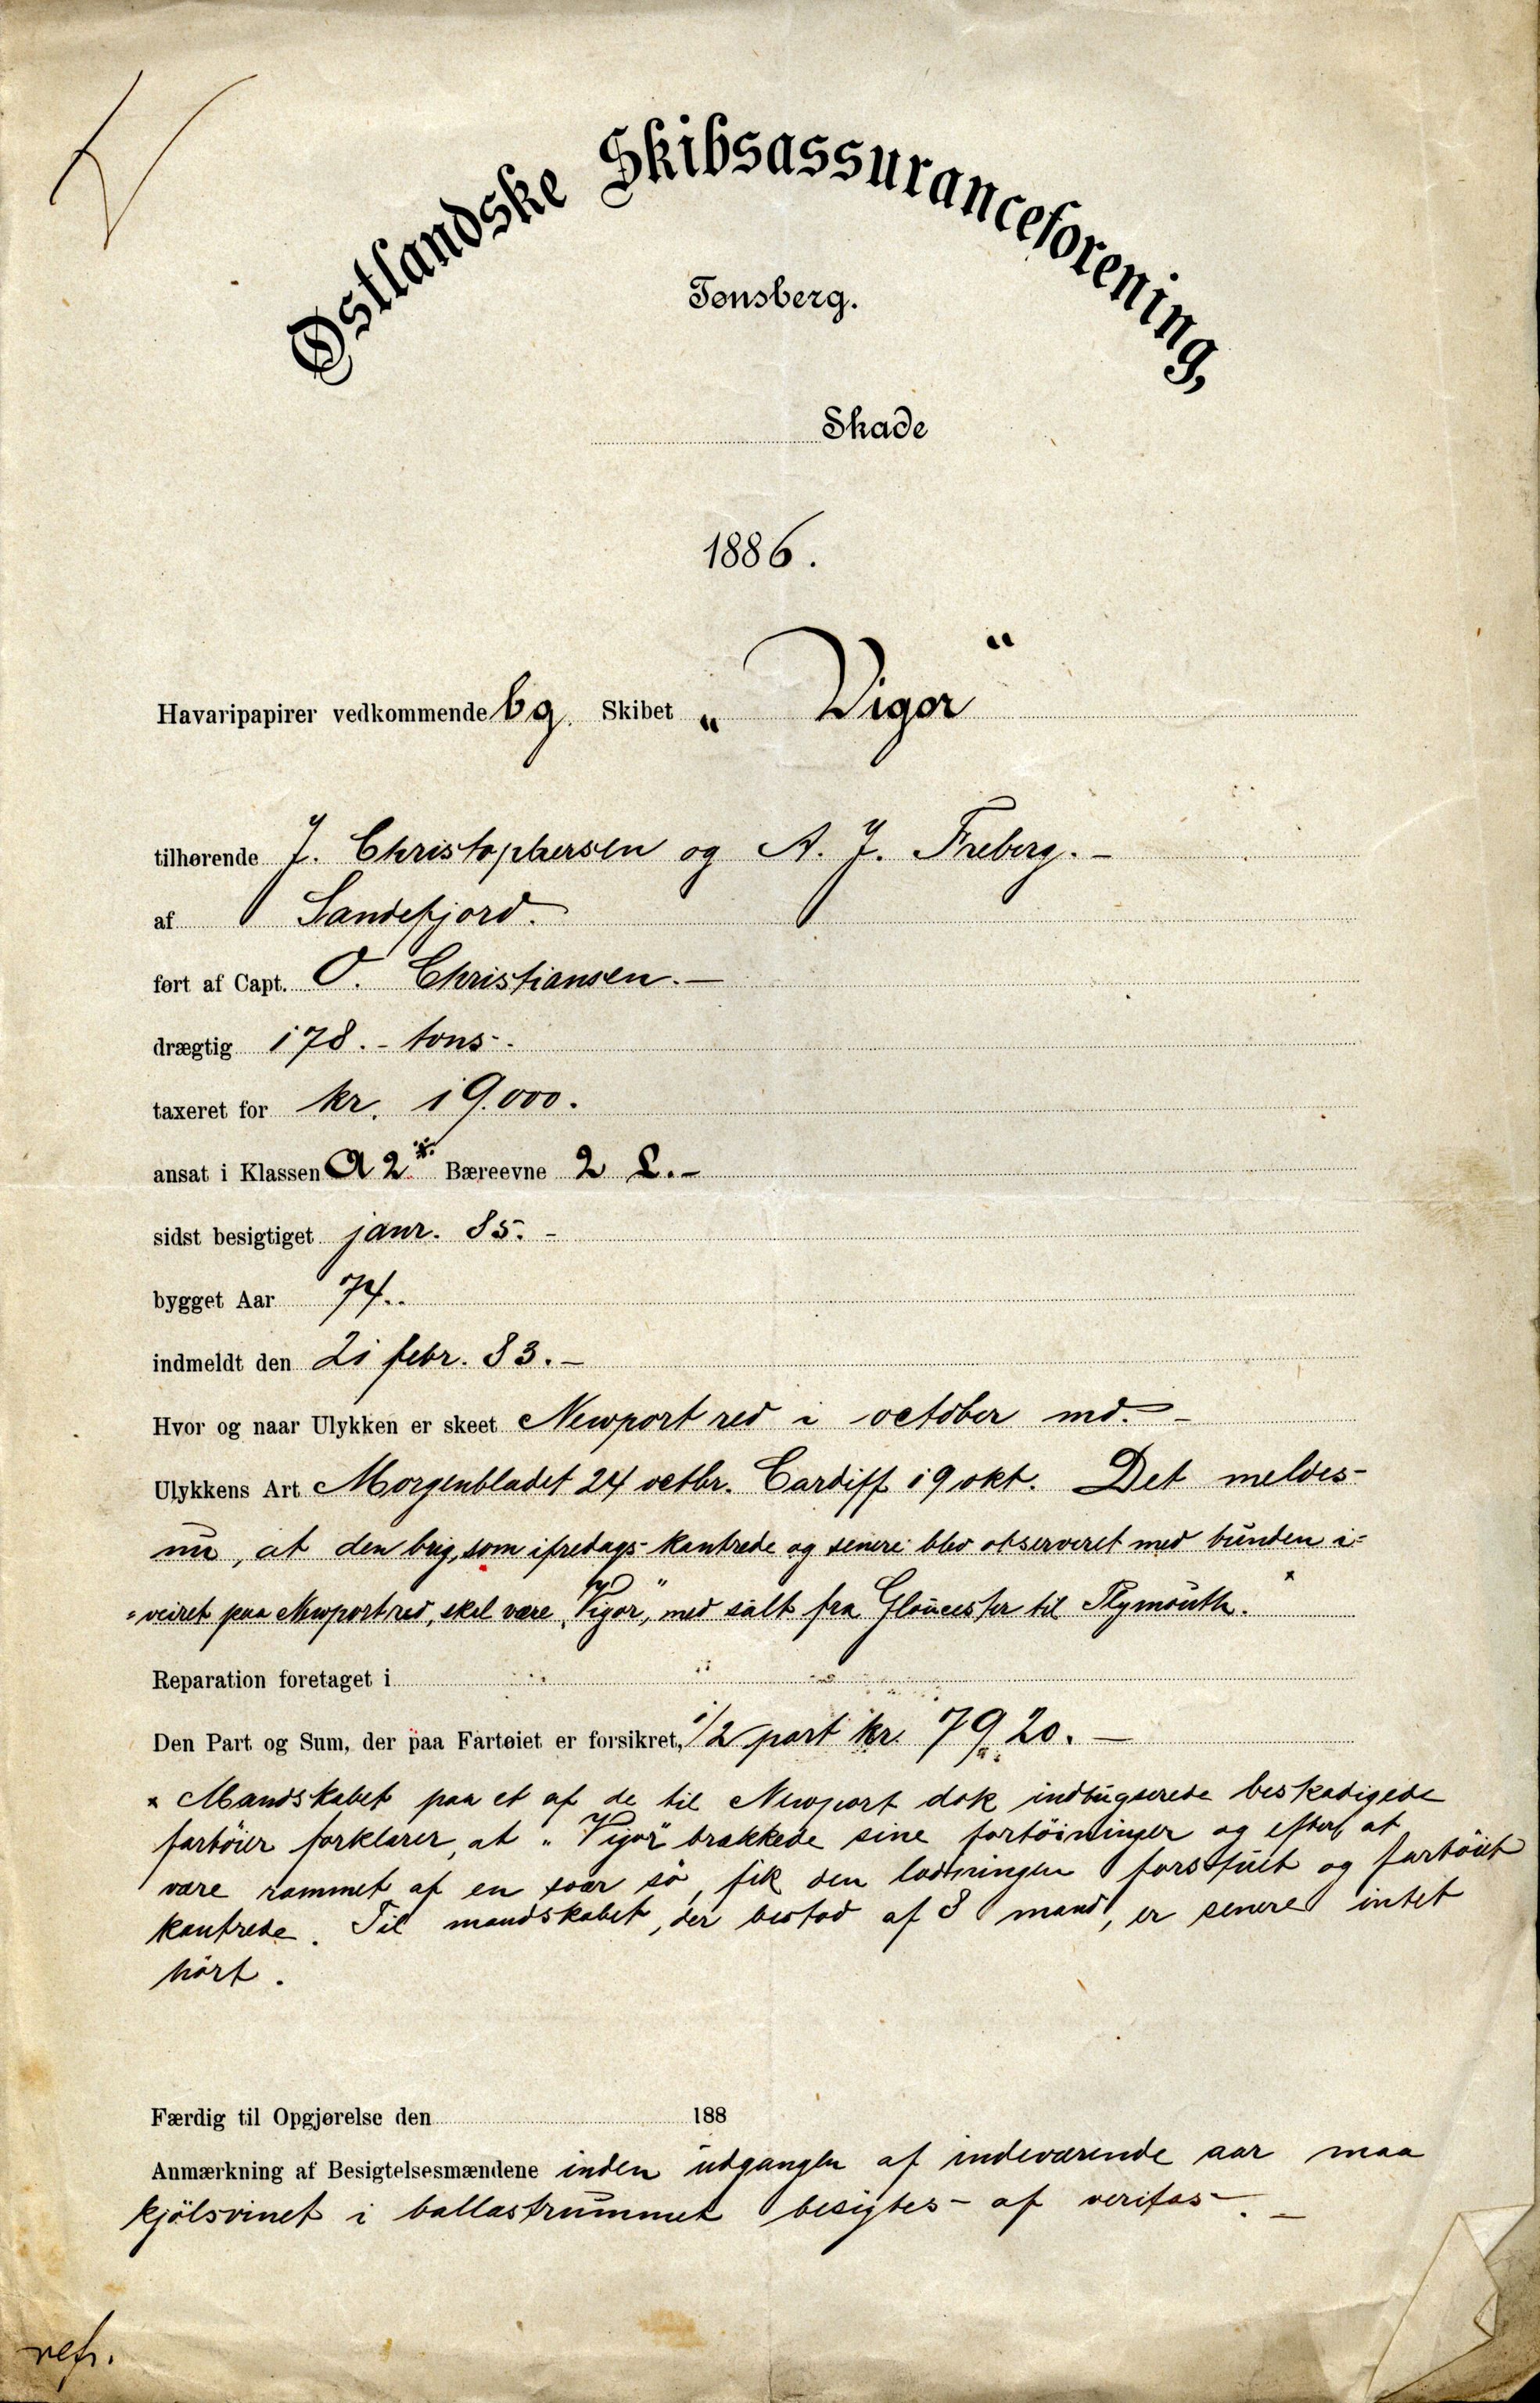 Østlandske Skibsassuranceforening,
Tønsberg.
Skade
1886.
Havaripapirer vedkommende bg. Skibet „Vigor“
tilhørende J. Christophersen og A. J. Freberg. -
af Sandefjord.
ført af Capt. O. Christiansen. -
drægtig 178. - tons.
taxeret for kr. 19.000.
ansat i Klassen A 2 * Bæreevne 2 L. -
sidst besigtiget janr. 85. -
bygget Aar 74.
indmeldt den 21 febr. 83. -
Hvor og naar Ulykken er skeet Newport red i october md. -
Ulykkens Art Morgenbladet 24 octbr. Cardiff 19 okt. Det meldes
nu, at den brig, som ifredags kantrede og senere blev observeret med bunden i=
=veiret paa Newport red, skal være „Vigor“, med salt fra Gloucester til Plymouth. x
Reparation foretaget i
Den Part og Sum, der paa Fartøiet er forsikret, 1/2 part kr. 7920. -
x Mandskabet paa et af de til Newport dok indbugserede beskadigede
fartöier forklarer, at „Vigor“ brækkede sine fortöininger og efter at
være rammet af en svær sö, fik den ladningen forskjüet og fartöiet
kantrede. Til mandskabet, der bestod af 8 mand, er senere intet
hört.
Færdig til Opgjørelse den 188
Anmærkning af Besigtelsesmændene inden udgangen af indeværende aar maa
kjölsvinet i ballastrummet besigtes af veritas. -